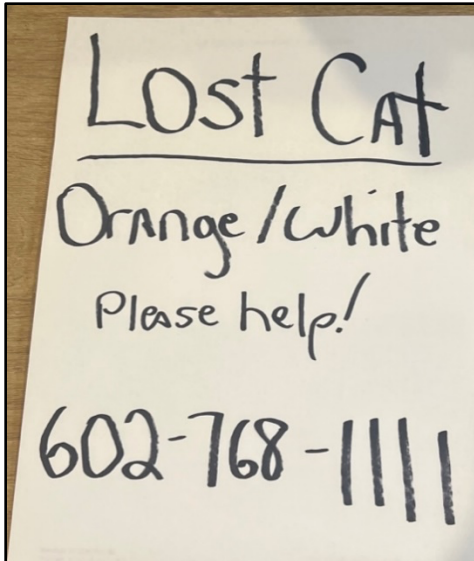 Lost Cat
Orange/white
Please help!
602-768-1111